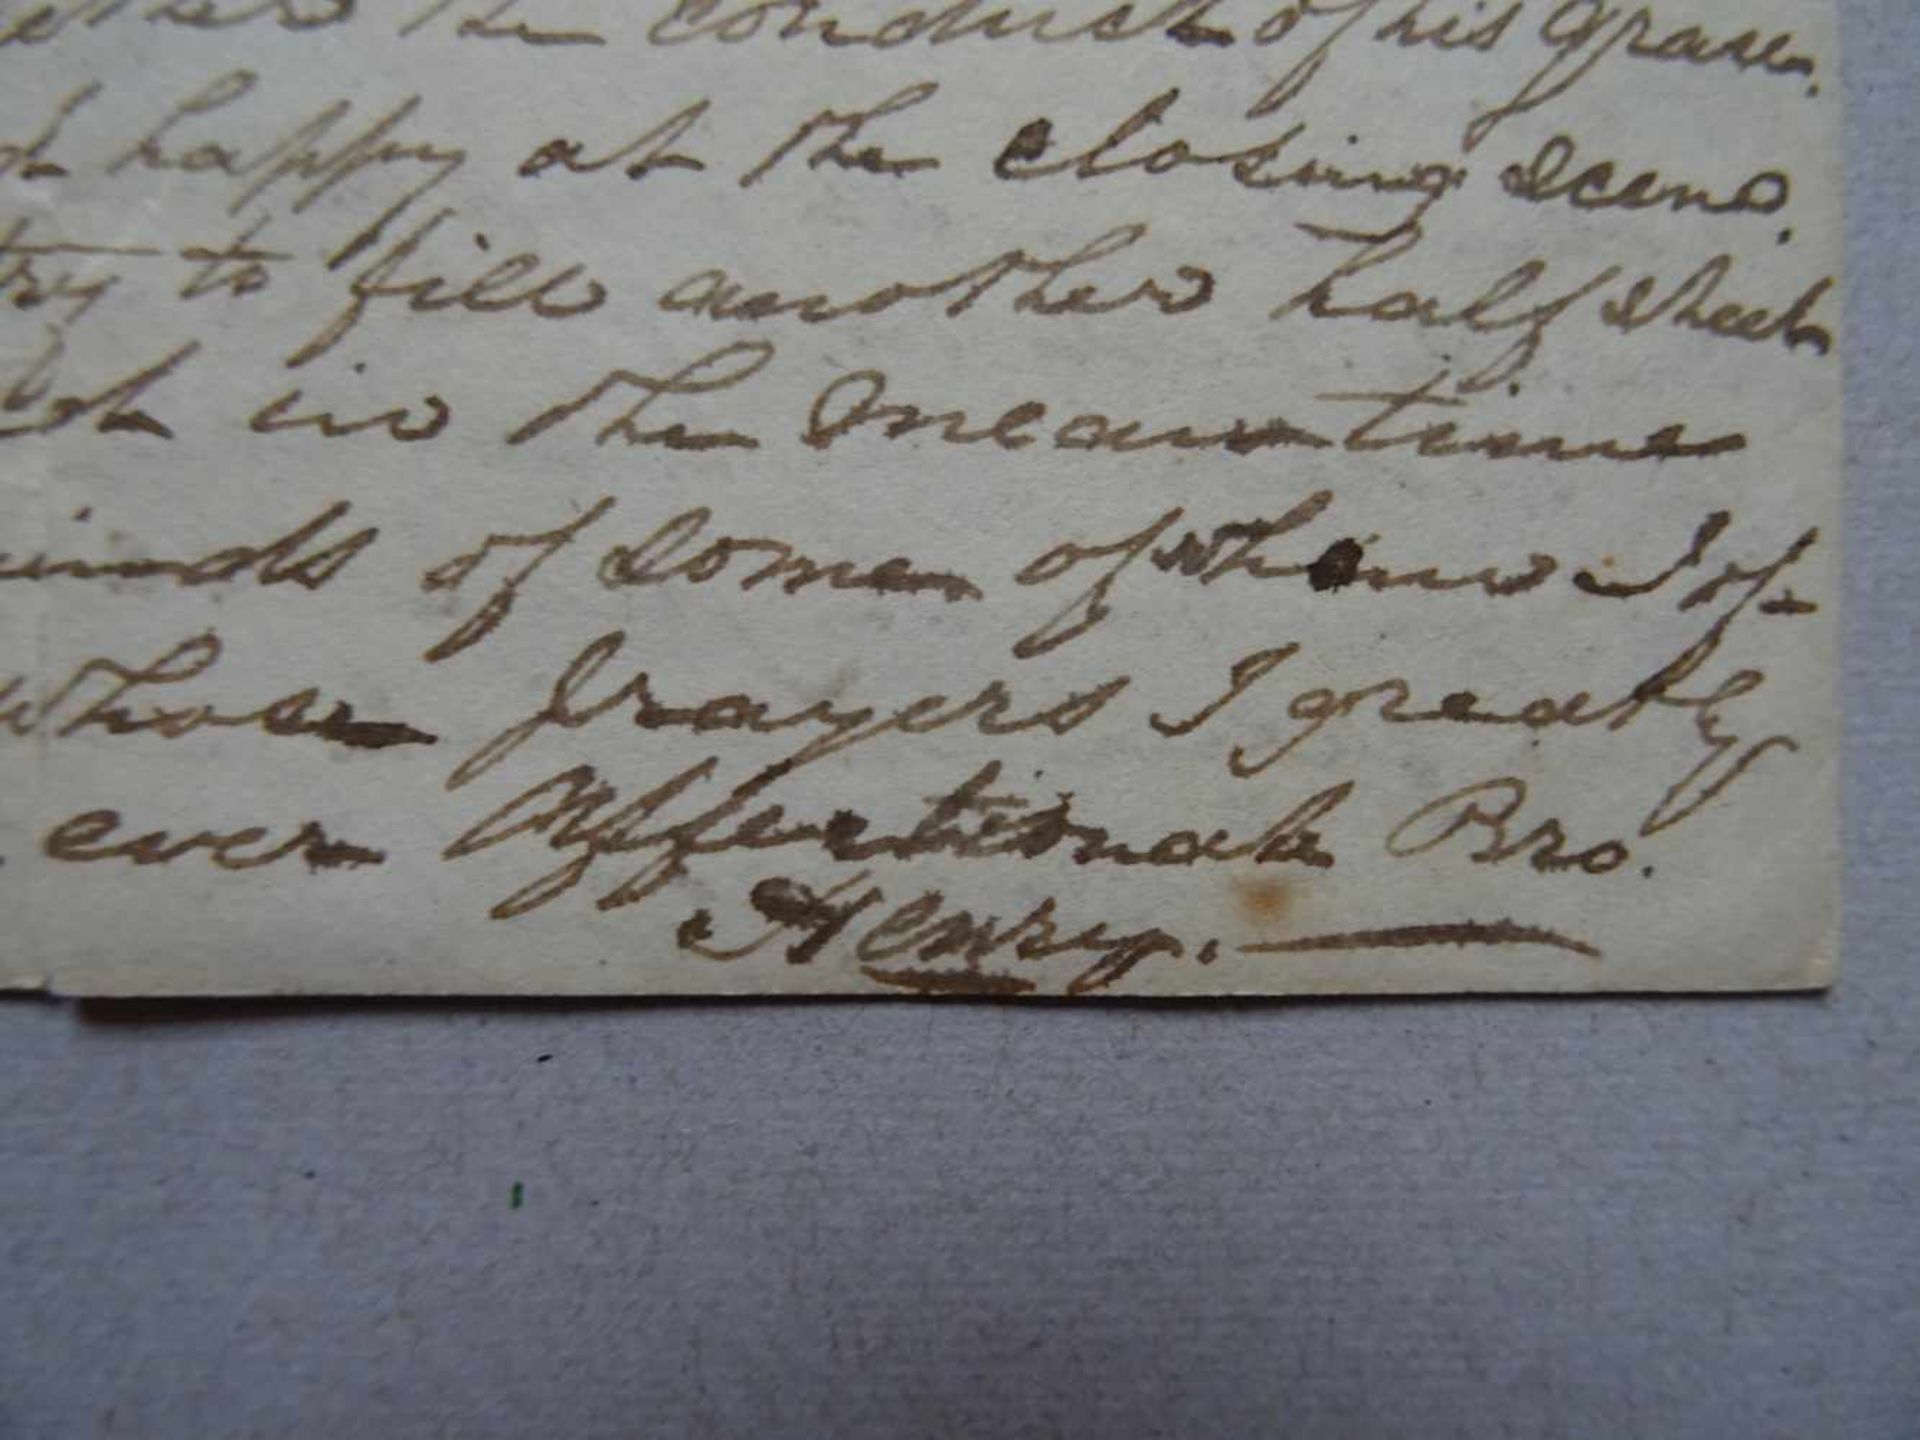 the conduct of his Grace.
happy at the closing scene.
try to fill another half sheet
in the mean time
of some of whom I of-
whose prayers I greatly
ever Affectionate Bro.
Henry.